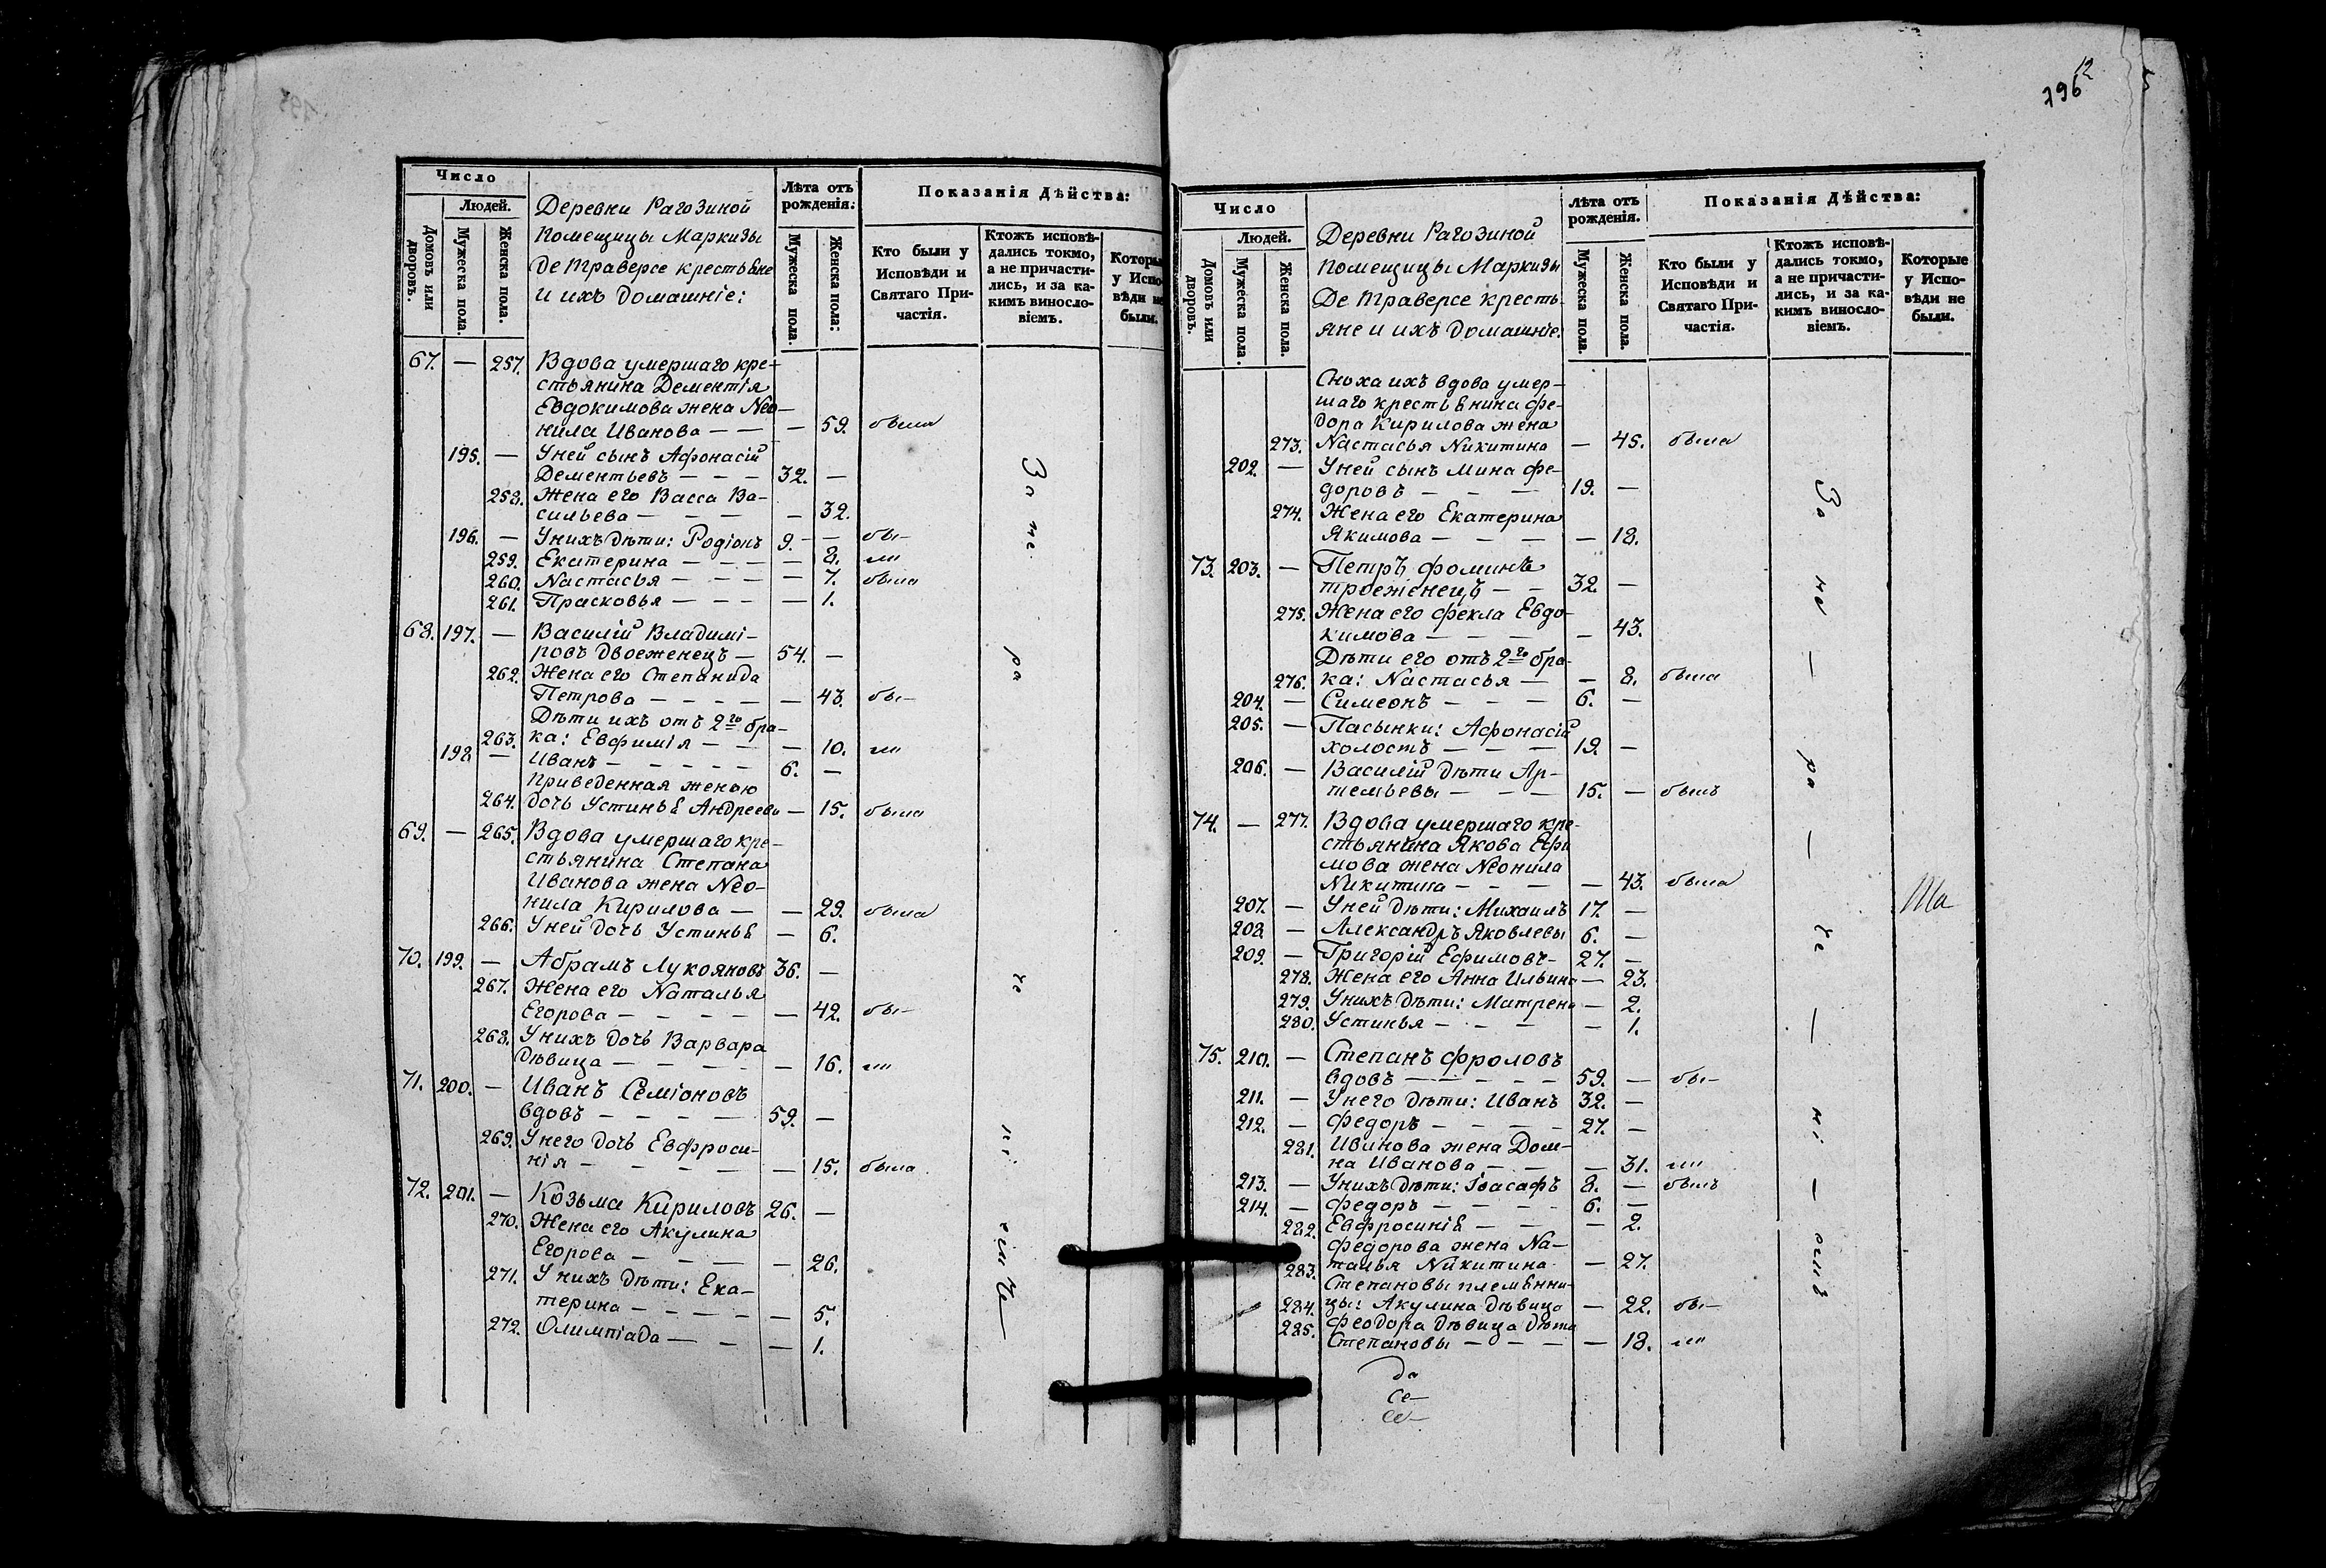 Число
Людей.
Домовъ или дворовъ.
Мужеска пола.
Женска пола.
Деревни Рагозиной
помещицы Маркизы
де траверсе крестьѣне
и ихъ домашніе:
Лѣта отъ рожденія:
Мужеска пола.
Женска пола:
Показанія Дѣйства:
Кто были у Исповѣди и Святаго Причастія.
Ктожъ исповѣдались токмо, а не причастились, и за какимъ винословіемъ.
Которые у Исповѣди не были.
67. — 257. Вдова умершаго кре-
стьянина Дементія
Евдокимова жена Нео-
нила Иванова — — — 59. была
195. — У ней сынъ Афонасій
Дементьевъ — — — 32. —
258. Жена его Васса Ва-
сильева — — — — 32.
196. — У нихъ дѣти: Родіонъ 9. — бы-
259. Екатерина — — — — 8. ли
260. Настасья — — — — 7. была
261. Прасковья — — — — 1.
68. 197. — Василій Владимі-
ровъ двоеженецъ — 54. —
262. Жена его Степанида
Петрова — — — — — 43. бы-
Дѣти ихъ отъ 2го бра-
263. ка: Евфимія — — — 10. ли
198. — Иванъ — — — — — 6. —
Приведенная женою
264. дочь Устиньѣ Андреева — 15. была
69. — 265. Вдова умершаго кре-
стьянина Степана
Иванова жена Нео-
нила Кирилова — — 29. была
266. У ней дочь Устиньѣ — 6.
70. 199. — Абрамъ Лукояновъ 36. —
267. Жена его Наталья
Егорова — — — — — 42. бы-
268. У нихъ дочь Варвара
дѣвица — — — — — 16. ли
71. 200. — Иванъ Семіоновъ
вдовъ — — — — 59. —
269. У него дочь Евфроси-
нія — — — — — 15. была
72. 201. — Козьма Кириловъ 26. —
270. Жена его Акулина
Егорова — — — — 26.
271. У нихъ дѣти: Ека-
терина — — — — — 5.
272. Олимпіада — — — 1.
За не
ра
че
ні
емъ
12
796
Число
Людей.
Домовъ или дворовъ.
Мужеска пола.
Женска пола.
Деревни Рагозиной
помещицы Маркизы
Де траверсе кресть-
яне и ихъ домашніе:
Лѣта отъ рожденія.
Мужеска пола.
Женска пола.
Показанія Дѣйства:
Кто были у Исповѣди и Святаго Причастія.
Ктожъ исповѣдались токмо, а не причастились, и за какимъ винословіемъ.
Которые у Исповѣди не были.
Сноха ихъ вдова умер-
шаго крестьѣнина фе-
дора Кирилова жена
273. Настасья Никитина — 45. была
202. — У ней сынъ Мина фе-
доровъ — — — 19. —
274. Жена его Екатерина
Якимова — — — — 18.
73. 203. — Петръ фоминъ
троеженецъ — — 32. —
275. Жена его фекла Евдо-
кимова — — — — 43.
Дѣти его отъ 2го бра-
276. ка: Настасья — — 8. была
204. — Симеонъ — — — 6. —
205. — Пасынки: Афонасій
холостъ — — — 19. —
206. — Василій дѣти Ар-
темьевы — — — 15. — былъ
74. — 277. Вдова умершаго кре-
стьянина Якова Ефи
мова жена Неонила
Никитина — — — — 43. была
207. — У ней дѣти: Михаилъ 17. —
208. — Александръ Яковлевы 6. —
209. — Григорій Ефимовъ- 27. —
278. Жена его Анна Ильина — 23.
279. У нихъ дѣти: Матрена — 2.
280. Устинья — — — — 1.
75. 210. — Степанъ фроловъ
вдовъ — — — — — 59. — бы-
211. — У него дѣти: Иванъ 32. —
212. — федоръ — — — — 27. —
281. Иванова жена Дом-
на Иванова — — — 31. ли
213. — У нихъ дѣти: Іоасафъ 8. — былъ
214. — федоръ — — — — 6. —
282. Евфросиніѣ — — — 2.
федорова жена На-
283. талья Никитина — 27.
Степановы племѣнни-
284. цы: Акулина дѣвица — 22. бы-
285. феодора дѣвица дѣти
Степановы — — — — 18. ли
За не — ра — че — ні — емъ